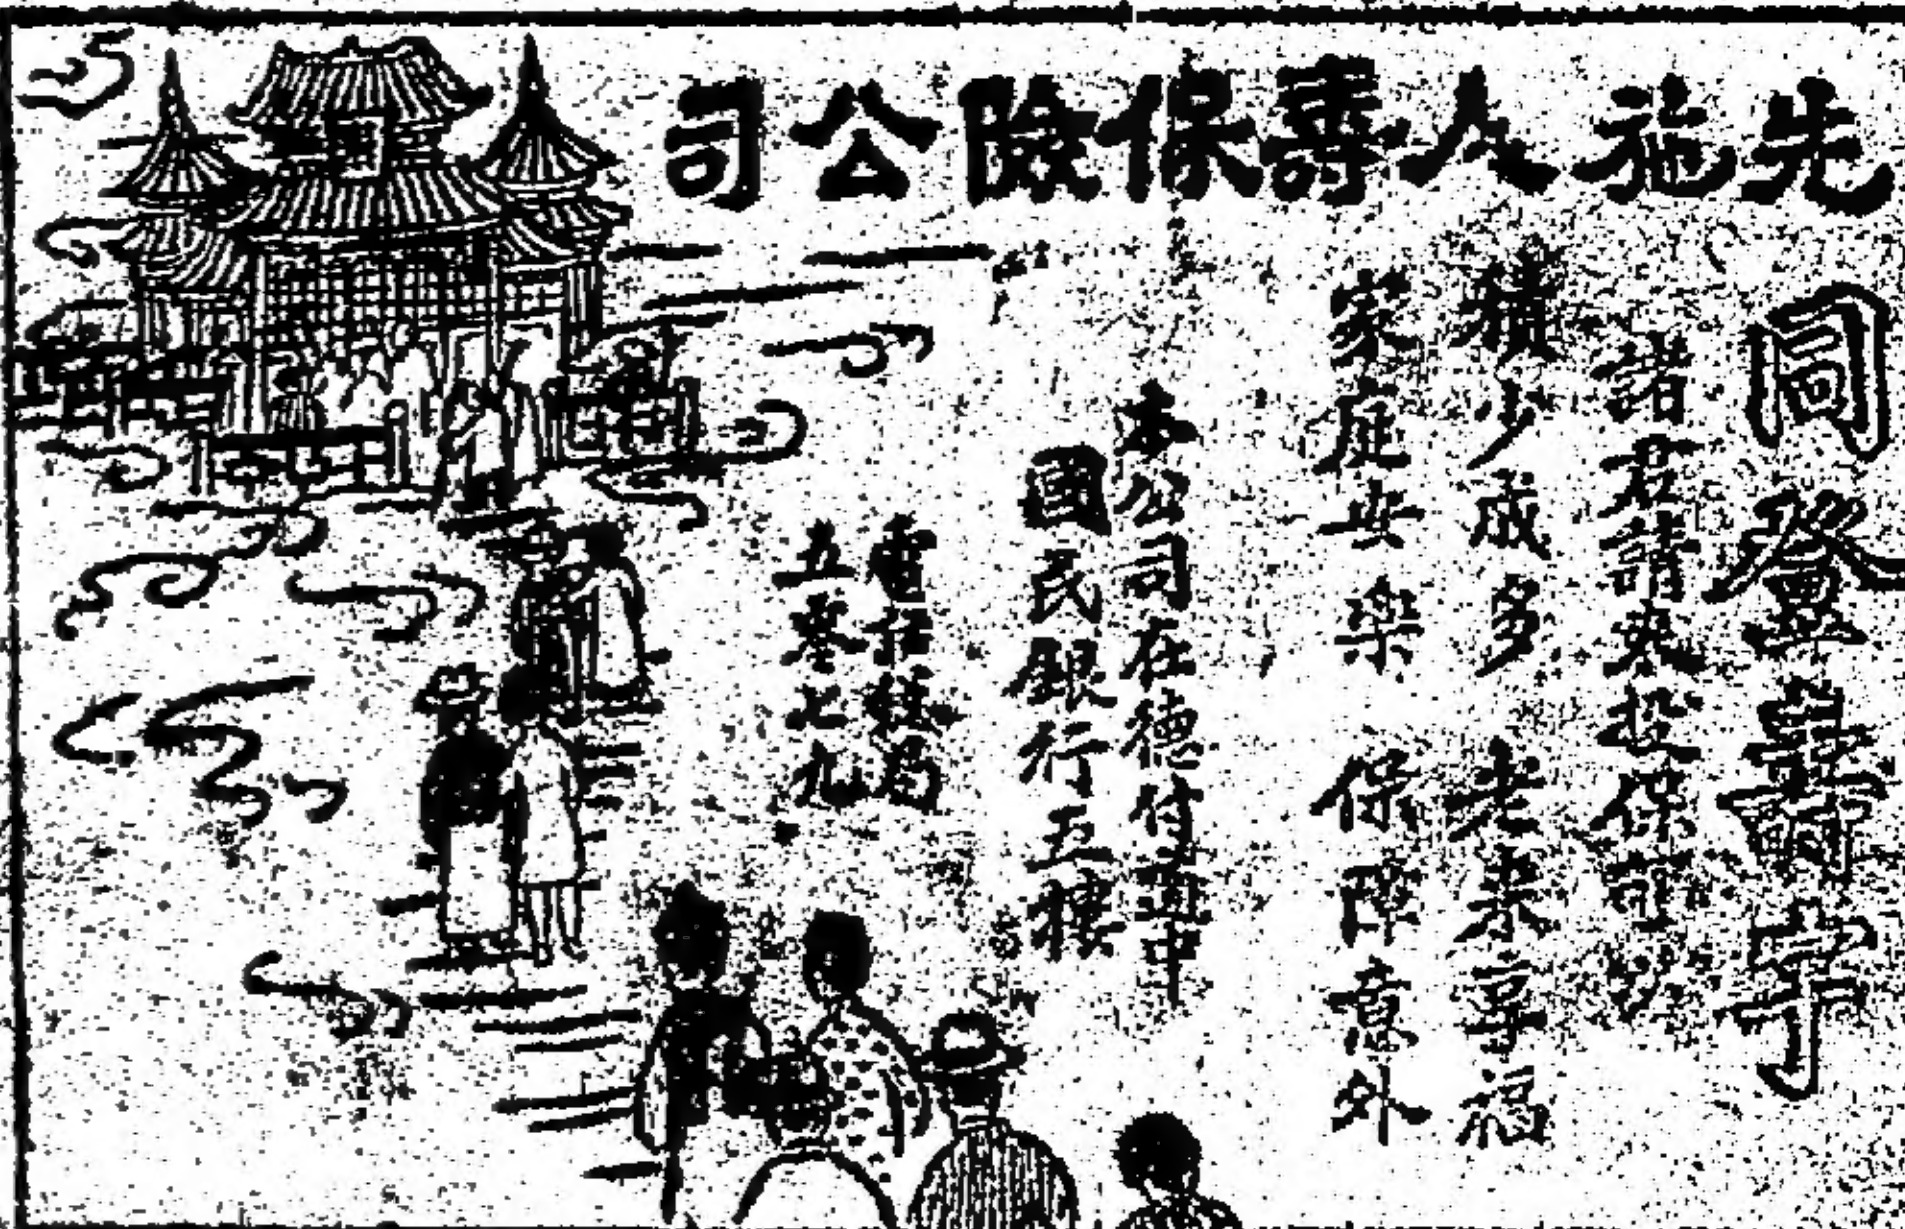 先施人壽保險公司
同登壽宇
諸君請來投保可也
積少成多 老來享福
家庭安樂 保障意外
本公司在德付道中
國民銀行五樓
電話號局
五零七九